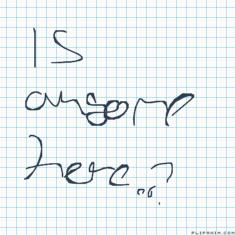 IS
anyone
here..?
FLIPANIM.COM